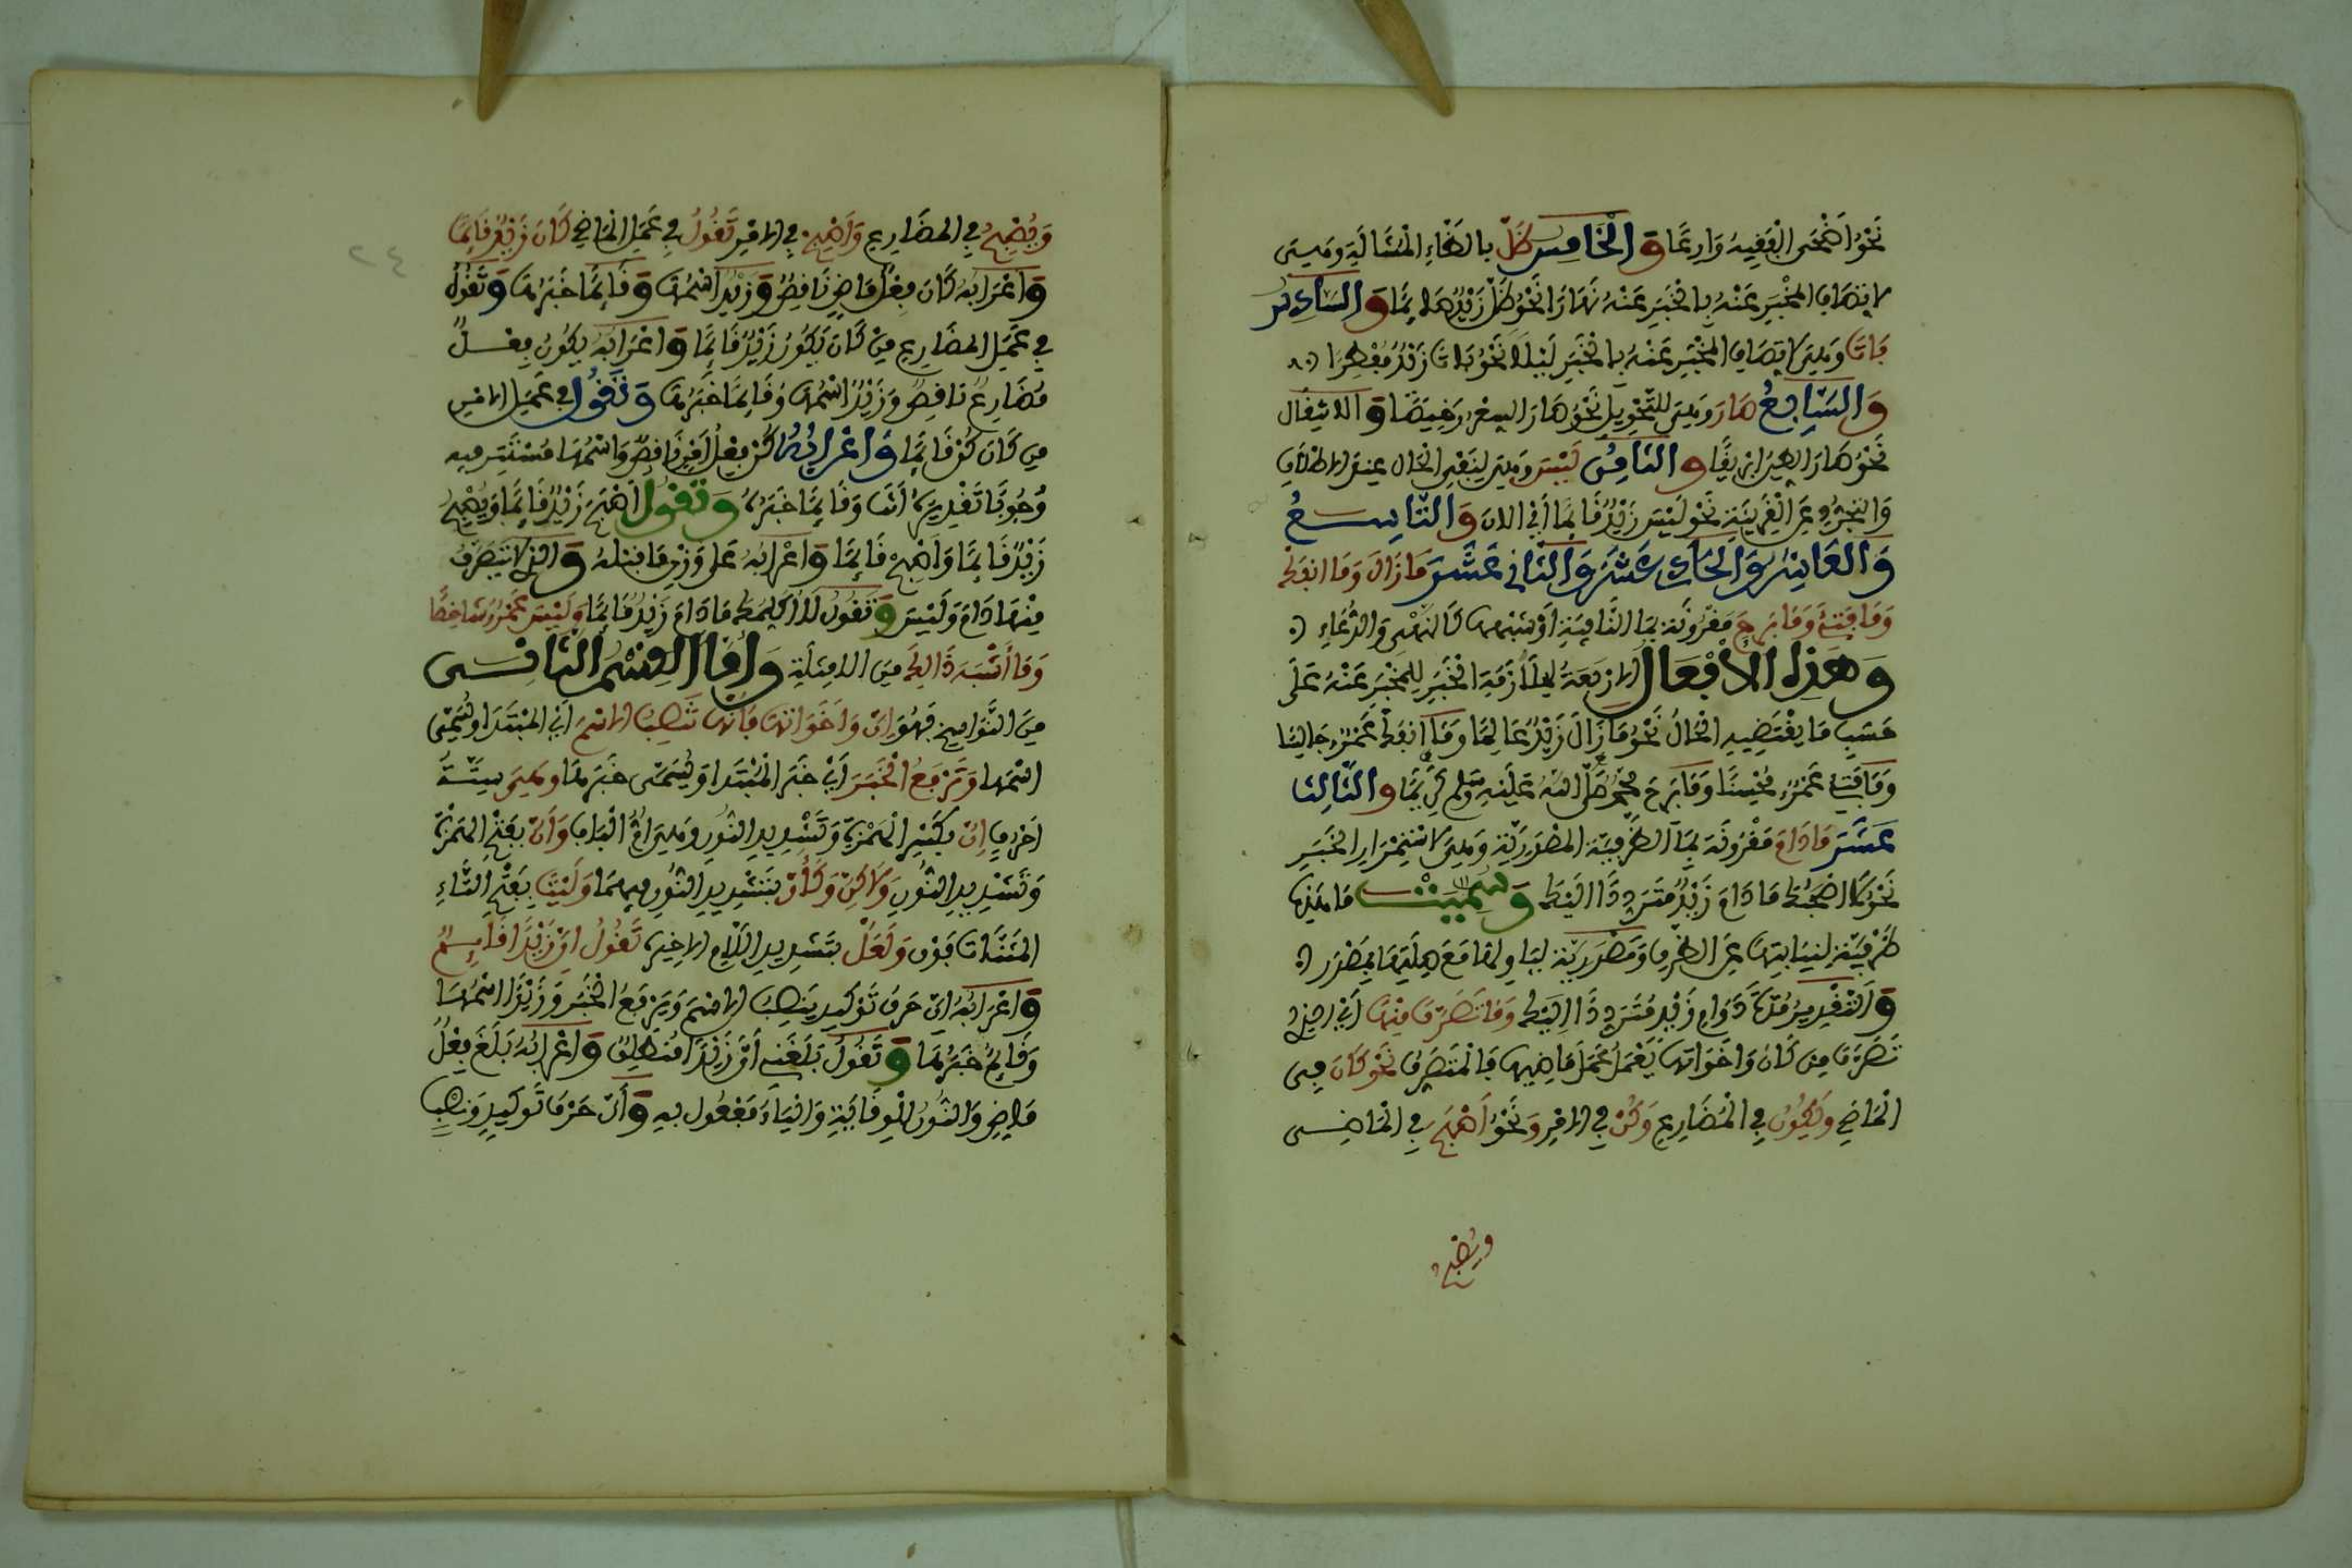 نَحْوُ أَضْحَى الْفَقِيهُ وَارِعًا وَالْخَامِسُ ظَلَّ بالظاءِ الْمُشَالَةِ وهي
لاتصاف المُخْبَرِ عَنْهُ بِالْخَبَرِ عَنْهُ نَهَارًا نَحْوُ ظَلَّ زَيْدٌ صَائِمًا وَالسَّادِسُ
بَاتَ وَهِيَ لاتصَافِ الْمُخْبَرِ عَنْهُ بِالْخَبَرِ لَيْلًا نَحْوُ بَاتَ زَيْدٌ مُفْطِرًا
وَالسَّابِعُ صَارَ وَهِيَ للتَّحْوِيلِ نَحْوُ صَارَ السِّعْرُ رَخِيصًا وَالانتِقَال
نَحْوُ صَارَ الطِّينُ إِبْرِيقًا وَالثَّامِنُ لَيْسَ وَهِيَ لِنَفْيِ الْحَال عِنْدَ الاطْلَاقِ
وَالتجَرُّدِ عَنِ الْقَرِينَةِ نَحْوُ لَيْسَ زَيْدٌ قَائِمًا أَيِ الان وَالتَّاسِعُ
وَالْعَاشِرُ وَالْحَادِي عَشَرَ وَالثَّانِي عَشَرَ مَازَالَ وَمَا انفَكَّ
وَمَا فَتِئَ وَمَا بَرِحَ مَقْرُونَة بِمَا النَّافِيَةِ أَوْ شِبْهِهَا كَالنَّهْيِ وَالدُّعَاءِ
وَهَذِهِ الأَفْعَالُ الارْبَعَةُ لِمُلَازَمَةِ الْخَبَرِ لِلْمُخْبَرِ عَنْهُ عَلَى
حَسَبِ مَا يَقْتَضِيهِ الْحَالُ نَحْوُ مَا زَالَ زَيْدٌ عَالِمًا وَمَا انفَكَّ عَمْرٌو جَالِسًا
وَمَا فَتِئَ عَمْرٌو مُحْسِنًا وَمَا بَرِحَ مُحَمَّدٌ صَلَّى اللَّهُ عَلَيْهِ وَسَلَّمَ كَرِيمًا وَالثَّالِثَ
عَشَرَ مَا دَامَ مَقْرُونَة بِمَا الظَّرْفِيَّة الْمَصْدَرِيَّةِ وَهِيَ لاسْتِمْرَارِ الْخَبَرِ
نَحْوُ لَا أَصْحَبُكَ مَا دَامَ زَيْدٌ مُتَرَدِّدًا الَيْكَ وَسُمِّيَتْ مَا هَذِهِ
ظَرْفِيَّةً لِنِيَابَتِهَا عَنِ الظَّرْفِ وَمَصْدَرِيَّة لِتَأْوِيلِهَا مَعَ صِلَتِهَا بِمَصْدَرٍ
وَالتَّقْدِيرُ مُدَّةَ دَوَامِ زَيْدٍ مُتَرَدِّدًا الَيْكَ وَمَا تَصَرَّفَ مِنْهَا أَيْ الذِي
تَصَرَّفَ مِنْ كَانَ وَأَخَوَاتِهَا يَعْمَلُ عَمَلَ مَاضِيهَا فَالْمُتَصَرِّفُ نَحْوُ كَانَ فِي
الْمَاضِي وَيَكُونُ فِي الْمُضَارِعِ وَكُنْ فِي الامْرِ وَنَحْوُ أَصْبَحَ فِي الْمَاضِي
ويصْبِح
وَيُصْبِحُ فِي الْمُضَارِعِ وَأَصْبِحْ فِي الامْرِ تَقُولُ فِي عَمَلِ الْمَاضِي كَانَ زَيْدٌ قَائِمًا
وَإِعْرَابُهُ كَانَ فِعْلٌ مَاضٍ نَاقِصٌ وَزَيْدٌ اسْمُهَا وَقَائِمًا خَبَرُهَا وَتَقُولُ
فِي عَمَلِ الْمُضَارِعِ مِنْ كَانَ يَكُونُ زَيْدٌ قَائِمًا وَإِعْرَابُهُ يَكُونُ فِعْلٌ
مُضَارِعٌ نَاقِصٌ وَزَيْدٌ اسْمُهَا وَقَائِمًا خَبَرُهَا وَتَقُولُ فِي عَمَلِ الامْرِ
مِن كَانَ كُنْ قَائِمًا وَإِعْرَابُهُ كُنْ فِعْلُ أَمْرٍ نَاقِصٌ وَاسْمُهَا مُسْتَتِر فِيهِ
وُجُوبًا تَقْدِيرُهُ أَنْتَ وَقَائِمًا خَبَرُهُ وَتَقُولُ أَصْبَحَ زَيْدٌ قَائِمًا وَيُصْبِحُ
زَيْدٌ قَائِمًا وَأَصْبِحْ قَائِمًا وَإِعْرَابُهُ عَلَى وَزْنِ مَا قبْلهُ وَالذي لَا يَتَصَرَّفُ
مِنْهَا دَامَ وَلَيْسَ وَتَقُولُ لَا أُكَلِّمُكَ مَا دَامَ زَيْدٌ قَائِمًا وَلَيْسَ عَمْرٌو شَاخِصًا
وَمَا أَشْبَهَ ذَالِكَ مِنَ الامْثِلَةِ وَأَمَّا الْقِسْمُ الثَّانِي
مِنَ النَّوَاسِخِ فَهُوَ إِنَّ وَأَخَوَاتِهَا فَإِنَّهَا تَنصِبُ الاسْمَ أَيْ الْمُبْتَدَا وَيُسَمَّى
اسْمَهَا وَتَرْفَعُ الْخَبَرَ أَيْ خَبَرَ الْمُبْتَدَا وَيُسَمَّى خَبَرهَا وهِيَ سِتَّةُ
أَحْرُفٍ إِنَّ بِكَسْرِ الْهَمْزَةِ وَتَشْدِيدِ النُّونِ وَهِيَ أُمُّ الْبَابِ وَأَنَّ بِفَتْحِ الْهَمْزَةِ
وَتَشْدِيدِ النُّونِ وَلَاكِنَّ وَكَأَنَّ بِتَشْدِيدِ النُّونِ فِيهِمَا وَلَيْتَ بِفَتْحِ التَّاءِ
الْمُثَنَّاتِ فَوْقَ وَلَعَلَّ بِتَشْدِيدِ اللَّامِ الاخِيرَةِ تَقُولُ إِنَّ زَيْدًا قَائِمٌ
وَإِعْرَابُهُ إِنَّ حَرْفُ تَوْكِيدٍ يَنصِبُ الاسْمَ وَيَرْفَعُ الْخَبَرَ وَزَيْدًا اسْمُهَا
وَقَائِمٌ خَبَرُهَا وَتَقُولُ بَلَغَنِي أَنَّ زَيْدًا مُنطَلِقٌ وَإِعْرَابُهُ بَلَغَ فِعْلٌ
مَاضٍ وَالنُّونُ لِلْوِقَايَةِ وَالْيَاءُ مَفْعُول بِهِ وَأَنَّ حَرْفُ تَوْكِيدٍ وَنَصْبٍ